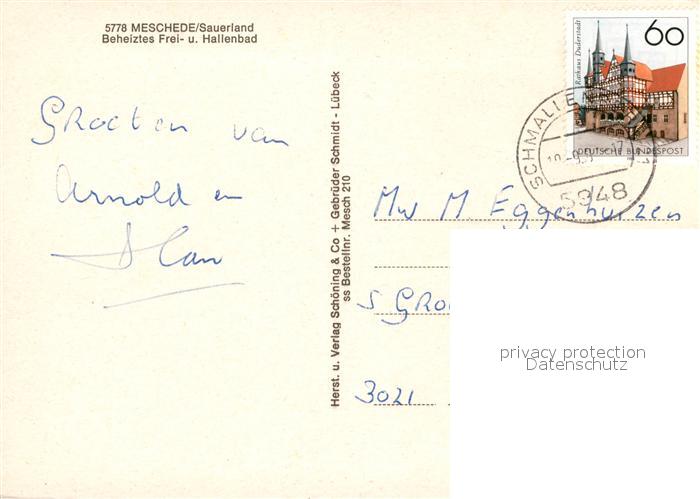 5778 MESCHEDE/Sauerland
Beheiztes Frei- u. Hallenbad
Groeten van
Arnold en
Herst. u. Verlag Schöning & Co + Gebrüder Schmidt - Lübeck
ss Bestellnr. Mesch 210
Rathaus Duderstadt
60
DEUTSCHE BUNDESPOST
SCHMALLEN
5948
Mw M. Eggenhuizen
S GRO
3021
privacy protection
Datenschutz